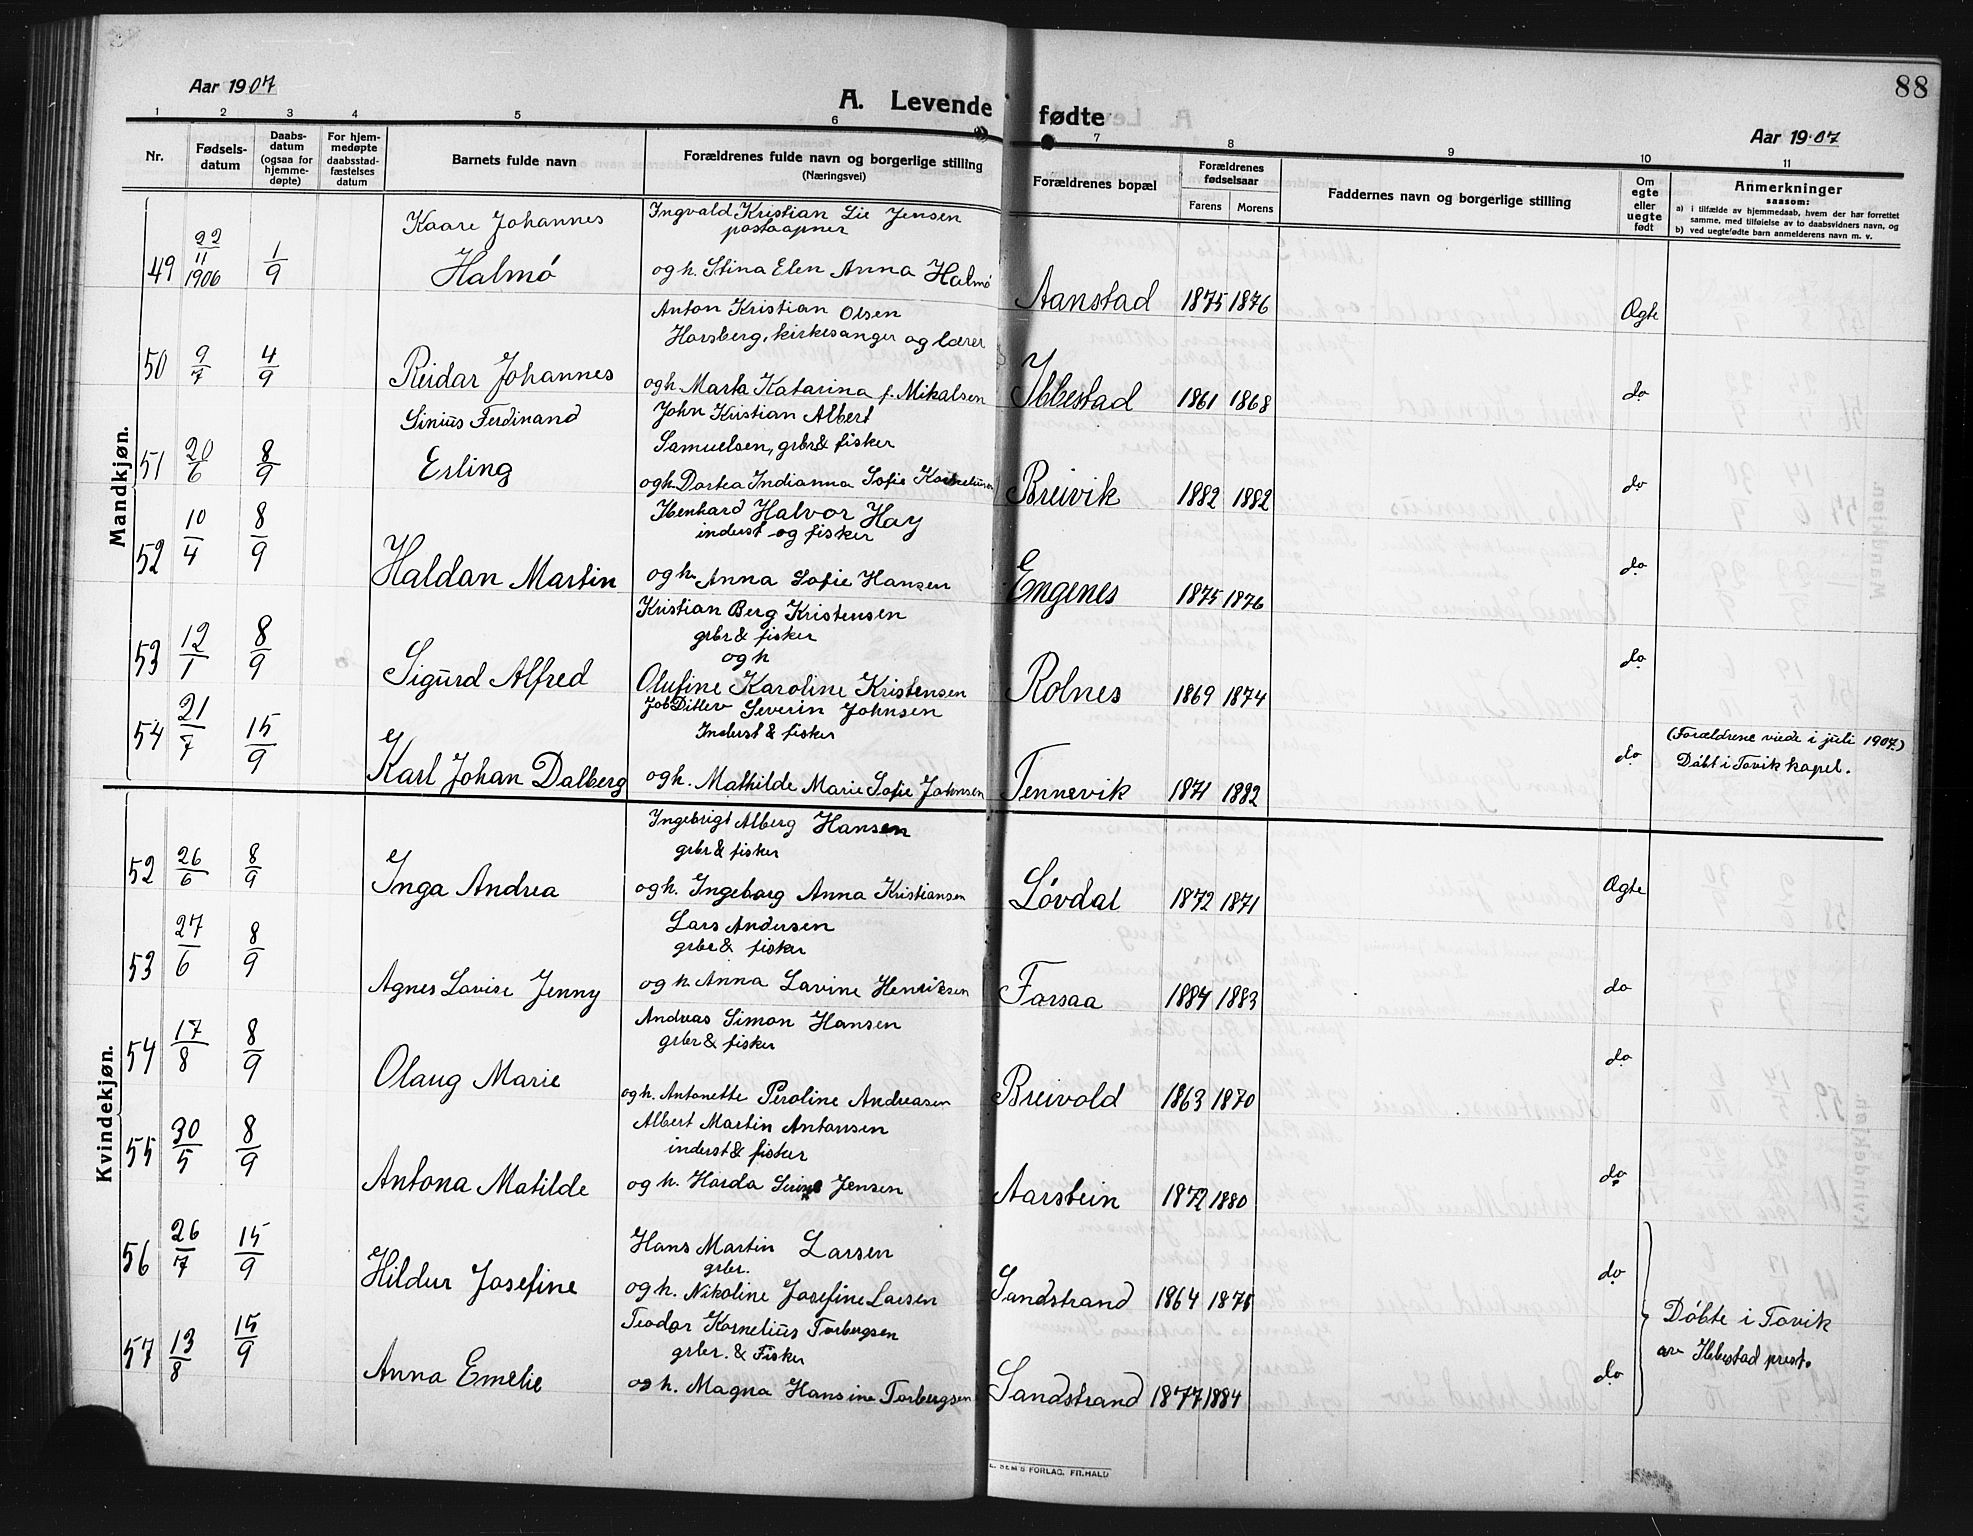 88
Aar 1907
A. Levende fødte
Aar 1907
1 2 3 4 5 6 7 8 9 10 11
Nr.
Fødsels-
datum
Daabs-
datum
(ogsaa for
hjemme-
døpte)
For hjem-
medøpte
daabsstad-
fæstelses
datum
Barnets fulde navn
Forældrenes fulde navn og borgerlige stilling
(Næringsvei)
Forældrenes bopæl
Forældrenes
fødselsaar
Farens Morens
Faddernes navn og borgerlige stilling
Om
egte
eller
uegte
født
Anmerkninger
saasom:
a) i tilfælde av hjemmedaab, hvem der har forrettet
samme, med tilføielse av to daabsvidners navn, og
b) ved uegtefødte barn anmelderens navn m. v.
Mandkjøn.
49 22/11 1906 1/9
Kaare Johannes
Halmø
Ingvald Kristian Lie Jensen
postaapner
og h. Stina Elen Anna Halmø
Aanstad 1875 1876 Ogte
50 9/7 4/9
Reidar Johannes
Anton Kristian Olsen
Horsberg, kirkesanger og lærer
og h. Marta Katarina f. Mikalsen
Ibbestad 1861 1868 do
51 20/6 8/9
Sinius Ferdinand
Erling
John Kristian Albert
Samuelsen, grbr & fisker
og h. Dortea Indianna Sofie Kornelius
Breivik 1882 1882 do
52 10/4 8/9
Haldan Martin
Ibenhard Halvor Hay
inderst og fisker
og h. Anna Sofie Hansen
Engenes 1875 1876 do
53 12/1 8/9
Sigurd Alfred
Kristian Berg Kristensen
grbr & fisker
og h
Olufine Karoline Kristensen
Rolnes 1869 1874 do
54 21/7 15/9
Karl Johan Dalberg
Job Ditlev Severin Johnsen
Inderst & fisker
og h. Mathilde Marie Sofie Johnsen
Tennevik 1871 1882 do
(Forældrene viede i juli 1907.)
Døbt i Tovik kapel.
Kvindekjøn.
52 26/6 8/9
Inga Andrea
Ingebrigt Alberg Hansen
grbr & fisker
og h. Ingeborg Anna Kristiansen
Løvdal 1872 1871 Ogte
53 27/6 8/9
Agnes Lovise Jenny
Lars Andersen
grbr & fisker
og h. Anna Lavine Henriksen
Forsaa 1884 1883 do
54 17/8 8/9
Olaug Marie
Andreas Simon Hansen
grbr & fisker
og h. Antonette Peroline Andreasen
Breivold 1863 1870 do
55 30/5 8/9
Antona Matilde
Albert Martin Antonsen
inderst & fisker
og h. Harda Jensen
Aarstein 1872 1880 do
56 26/7 15/9
Hildur Josefine
Hans Martin Larsen
grbr.
og h. Nikoline Josefine Larsen
Sandstrand 1864 1875 do
57 13/8 15/9
Anna Emelie
Teodor Kornelius Torbergsen
grbr. & Fisker
og h. Magna Hansine Torbergsen
Sandstrand 1877 1884 do
Døbte i Tovik
av Ibbestad prest.
SEM'S FORLAG, FR.HALD